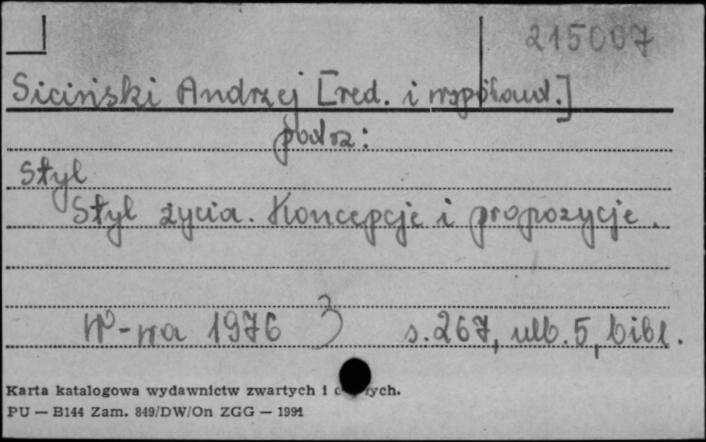 215007
Siciński Andrzej [red. i współaut.]
podrz:
Styl
Styl życia. Koncepcje i propozycje.
W-wa 1976 s. 267, nlb. 5, bibl.
Karta katalogowa wydawnictw zwartych i
PU — B144 Zam. 849/DW/On ZGG — 1991